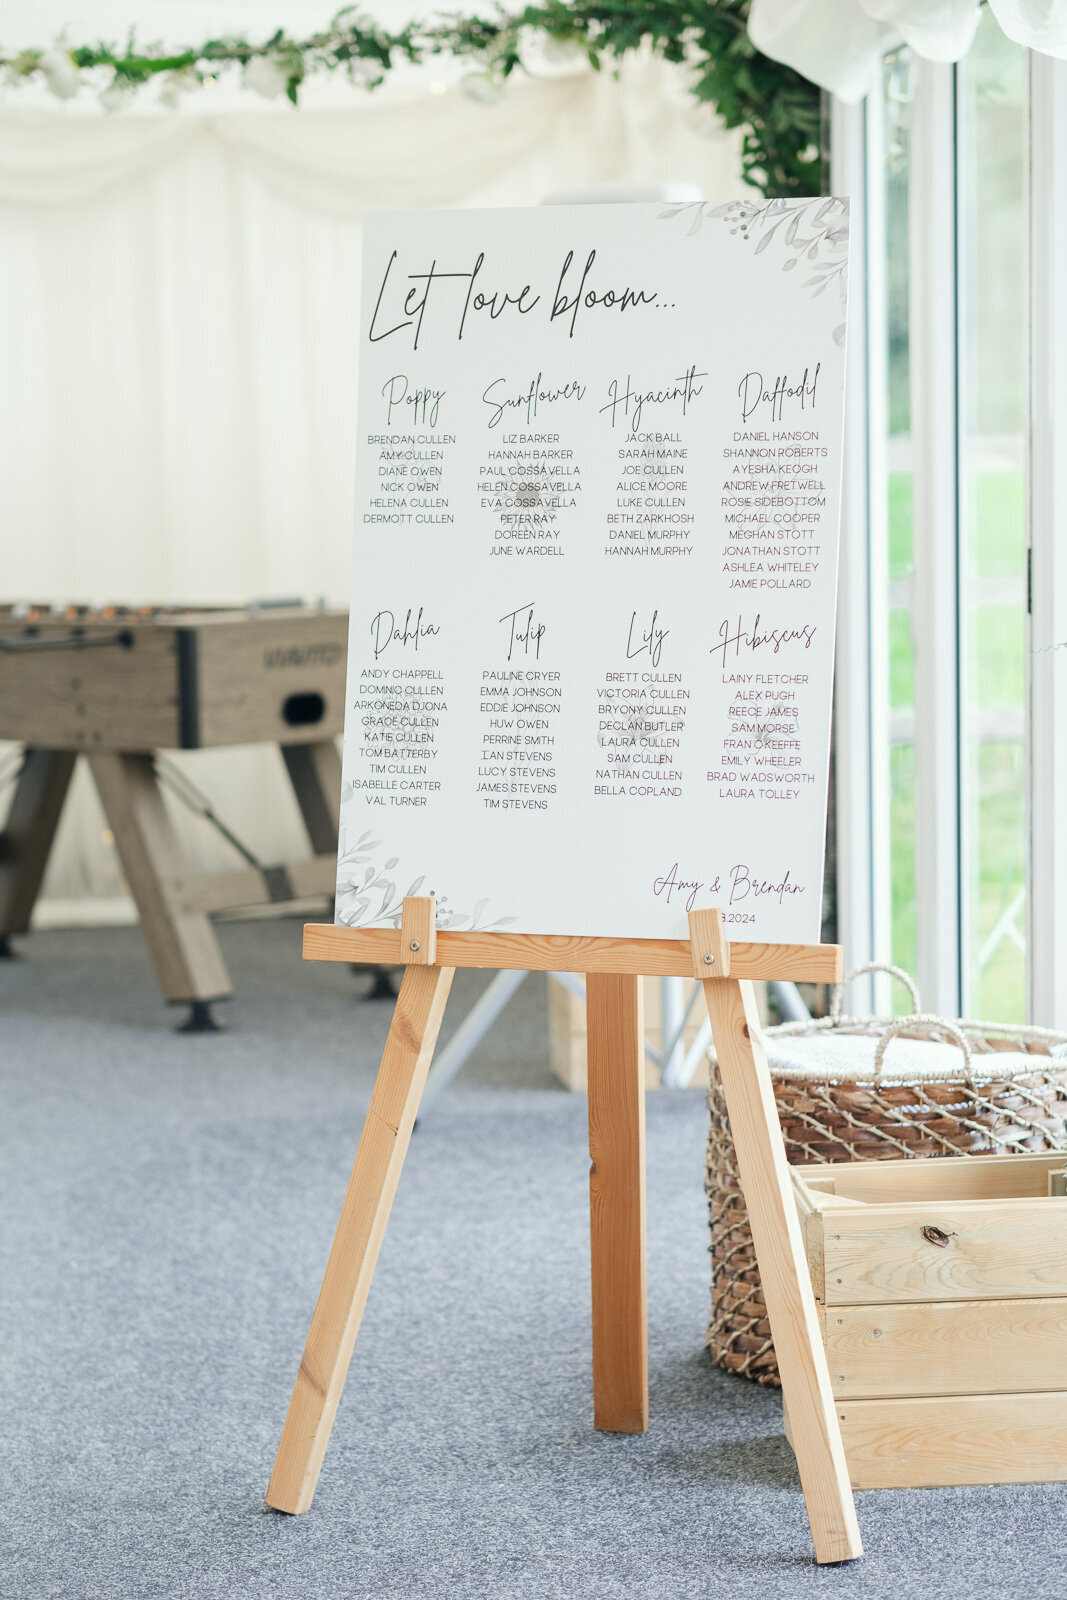 Let love bloom...
Poppy
BRENDAN CULLEN
AMY CULLEN
DIANE OWEN
NICK OWEN
HELENA CULLEN
DERMOTT CULLEN
Sunflower
LIZ BARKER
HANNAH BARKER
PAUL COSSAVELLA
HELEN COSSAVELLA
EVA COSSAVELLA
PETER RAY
DOREEN RAY
JUNE WARDELL
Hyacinth
JACK BALL
SARAH MAINE
JOE CULLEN
ALICE MOORE
LUKE CULLEN
BETH ZARKHOSH
DANIEL MURPHY
HANNAH MURPHY
Daffodil
DANIEL HANSON
SHANNON ROBERTS
AYESHA KEOGH
ANDREW FRETWELL
ROSIE SIDEBOTTOM
MICHAEL COOPER
MEGHAN STOTT
JONATHAN STOTT
ASHLEA WHITELEY
JAMIE POLLARD
Dahlia
ANDY CHAPPELL
DOMINIC CULLEN
ARKONEDA DJONA
GRACE CULLEN
KATIE CULLEN
TOM BATTERBY
TIM CULLEN
ISABELLE CARTER
VAL TURNER
Tulip
PAULINE CRYER
EMMA JOHNSON
EDDIE JOHNSON
HUW OWEN
PERRINE SMITH
IAN STEVENS
LUCY STEVENS
JAMES STEVENS
TIM STEVENS
Lily
BRETT CULLEN
VICTORIA CULLEN
BRYONY CULLEN
DECLAN BUTLER
LAURA CULLEN
SAM CULLEN
NATHAN CULLEN
BELLA COPLAND
Hibiscus
LAINY FLETCHER
ALEX PUGH
REECE JAMES
SAM MORSE
FRAN O'KEEFFE
EMILY WHEELER
BRAD WADSWORTH
LAURA TOLLEY
Amy & Brendan
8.2024